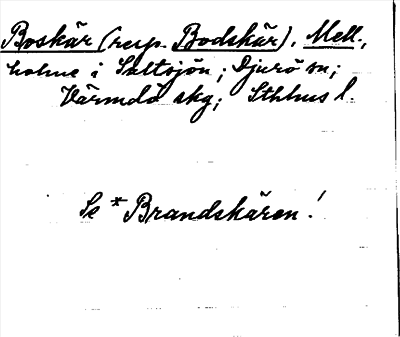 Boskär (resp. Bodskär), Mell.,
holme i Saltsjön; Djurö sn;
Värmdö skg; Sthlms l.
Se *Brandskären!